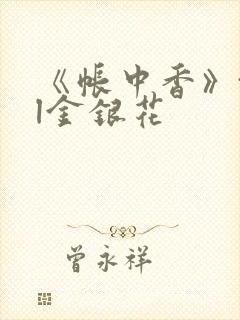 《帐中香》
|金银花
曾永祥